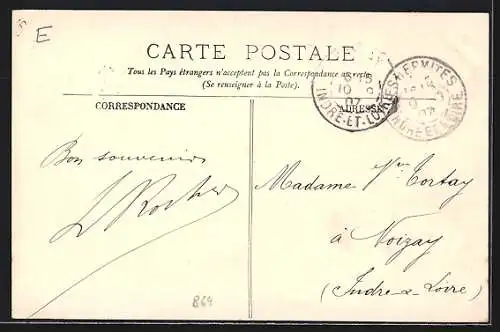 E
CARTE POSTALE
Tous les Pays étrangers n'acceptent pas la Correspondance au recto
(Se renseigner à la Poste).
CORRESPONDANCE
ADRESSE
INDRE-ET-LOIRE
10 9
07
LES HERMITES
INDRE ET LOIRE
Bon souvenir
Madame Vve Tortay
à Noizay
(Indre & Loire)
864